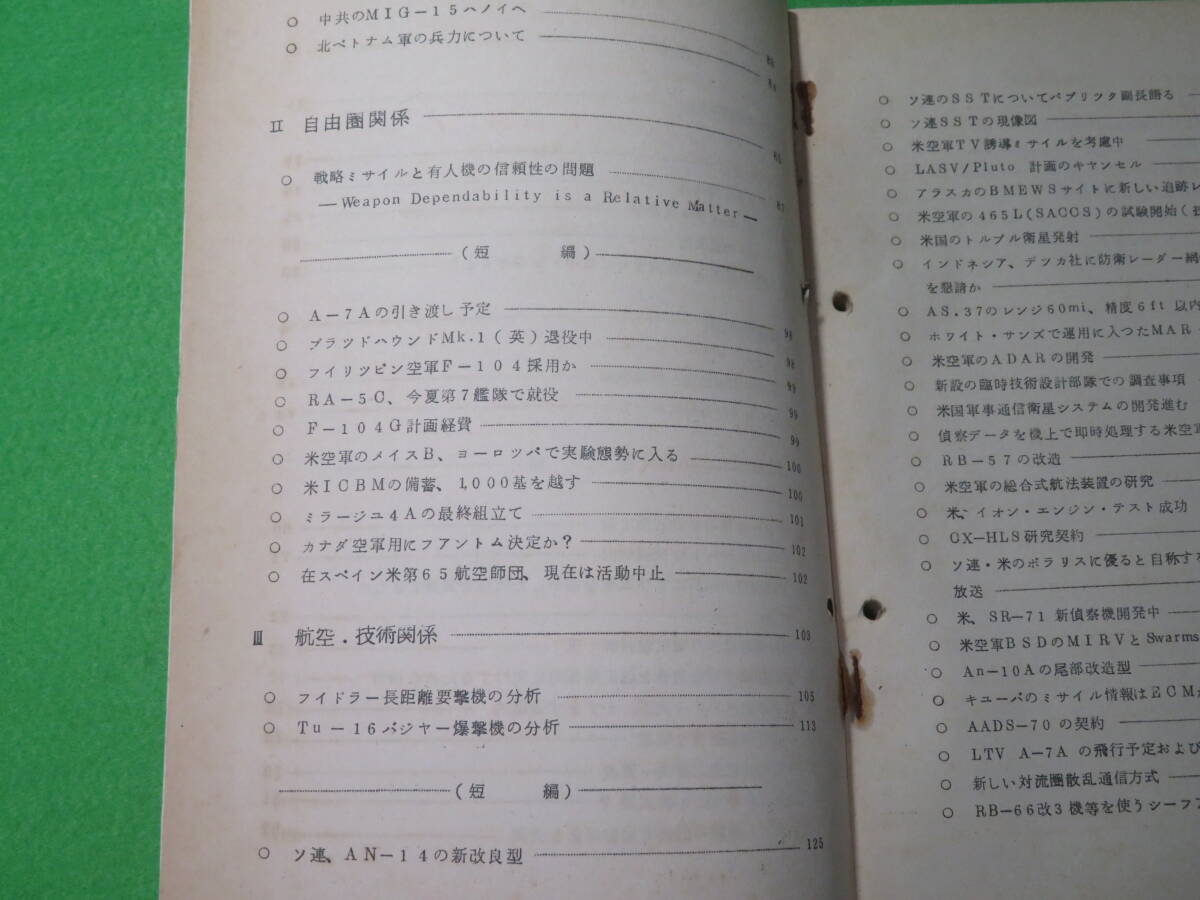 ○ 中共のMIG－15ハノイへ
○ 北ベトナム軍の兵力について
Ⅱ 自由圏関係
○ 戦略ミサイルと有人機の信頼性の問題 87
―Weapon Dependability is a Relative Matter―
(短　編)
○ A－7Aの引き渡し予定 98
○ ブラツドハウンドMk.1(英)退役中 98
○ フイリツピン空軍F－104採用か 99
○ RA－5C、今夏第7艦隊で就役 99
○ F－104G計画経費 99
○ 米空軍のメイスB、ヨーロツパで実験態勢に入る 100
○ 米ICBMの備蓄、1,000基を越す 100
○ ミラージユ4Aの最終組立て 101
○ カナダ空軍用にフアントム決定か? 102
○ 在スペイン米第65航空師団、現在は活動中止 102
Ⅲ 航空.技術関係 103
○ フイドラー長距離要撃機の分析 105
○ Tu－16バジヤー爆撃機の分析 113
(短　編)
○ ソ連、AN－14の新改良型 125
○ ソ連のSSTについてパブリツタ副長語る
○ ソ連SSTの現像図
○ 米空軍TV誘導ミサイルを考慮中
○ LASV/Pluto 計画のキヤンセル
○ アラスカのBMEWSサイトに新しい追跡レ
○ 米空軍の465L(SACCS)の試験開始(
○ 米国のトルプル衛星発射
○ インドネシア、デツカ社に防衛レーダー網
を懇請か
○ AS.37のレンジ60mi、精度6ft 以内
○ ホワイト・サンズで運用に入つたMAR
○ 米空軍のADARの開発
○ 新設の臨時技術設計部隊での調査事項
○ 米国軍事通信衛星システムの開発進む
○ 偵察データを機上で即時処理する米空軍
○ RB－57の改造
○ 米空軍の総合式航法装置の研究
○ 米、イオン・エンジン・テスト成功
○ CX－HLS研究契約
○ ソ連・米のポラリスに優ると自称する
放送
○ 米、SR－71 新偵察機開発中
○ 米空軍BSDのMIRVとSwarms
○ An－10Aの尾部改造型
○ キユーバのミサイル情報はECM
○ AADS－70の契約
○ LTV A－7Aの飛行予定および
○ 新しい対流圏散乱通信方式
○ RB－66改3機等を使うシーフ